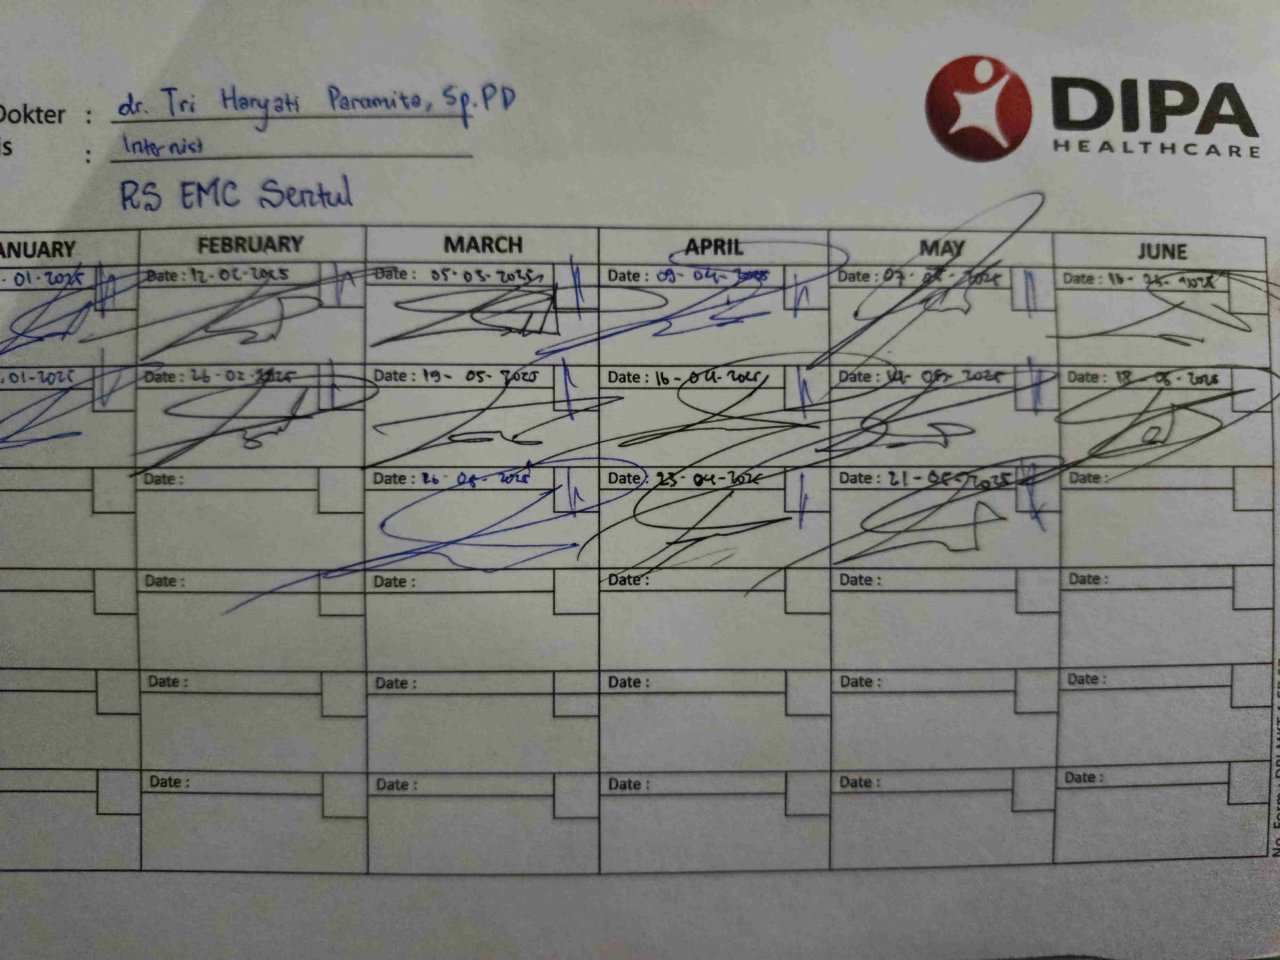 Dokter : dr. Tri Haryati Paramita, Sp.PD
is : Internist
RS EMC Sentul
DIPA
HEALTHCARE
ANUARY FEBRUARY MARCH APRIL MAY JUNE
-01-2025 Date : 12-02-2025 Date : 05-03-2025 Date : 09-04-2025 Date : 07-05-2025 Date :
.01-2025 Date : 26-02-2025 Date : 19-05-2025 Date : 16-04-2025 Date : 14-05-2025 Date : 18-06-2025
Date : Date : 26-03-2025 Date : 23-04-2025 Date : 21-05-2025 Date :
Date : Date : Date : Date : Date :
Date : Date : Date : Date : Date :
Date : Date : Date : Date : Date :
No. Form